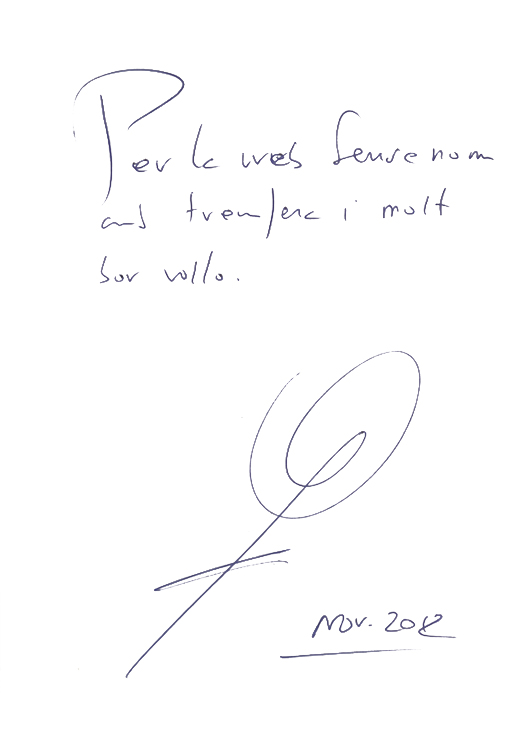 Per la web Sense nom
amb trempera i molt
bon rollo.
Nov. 2012